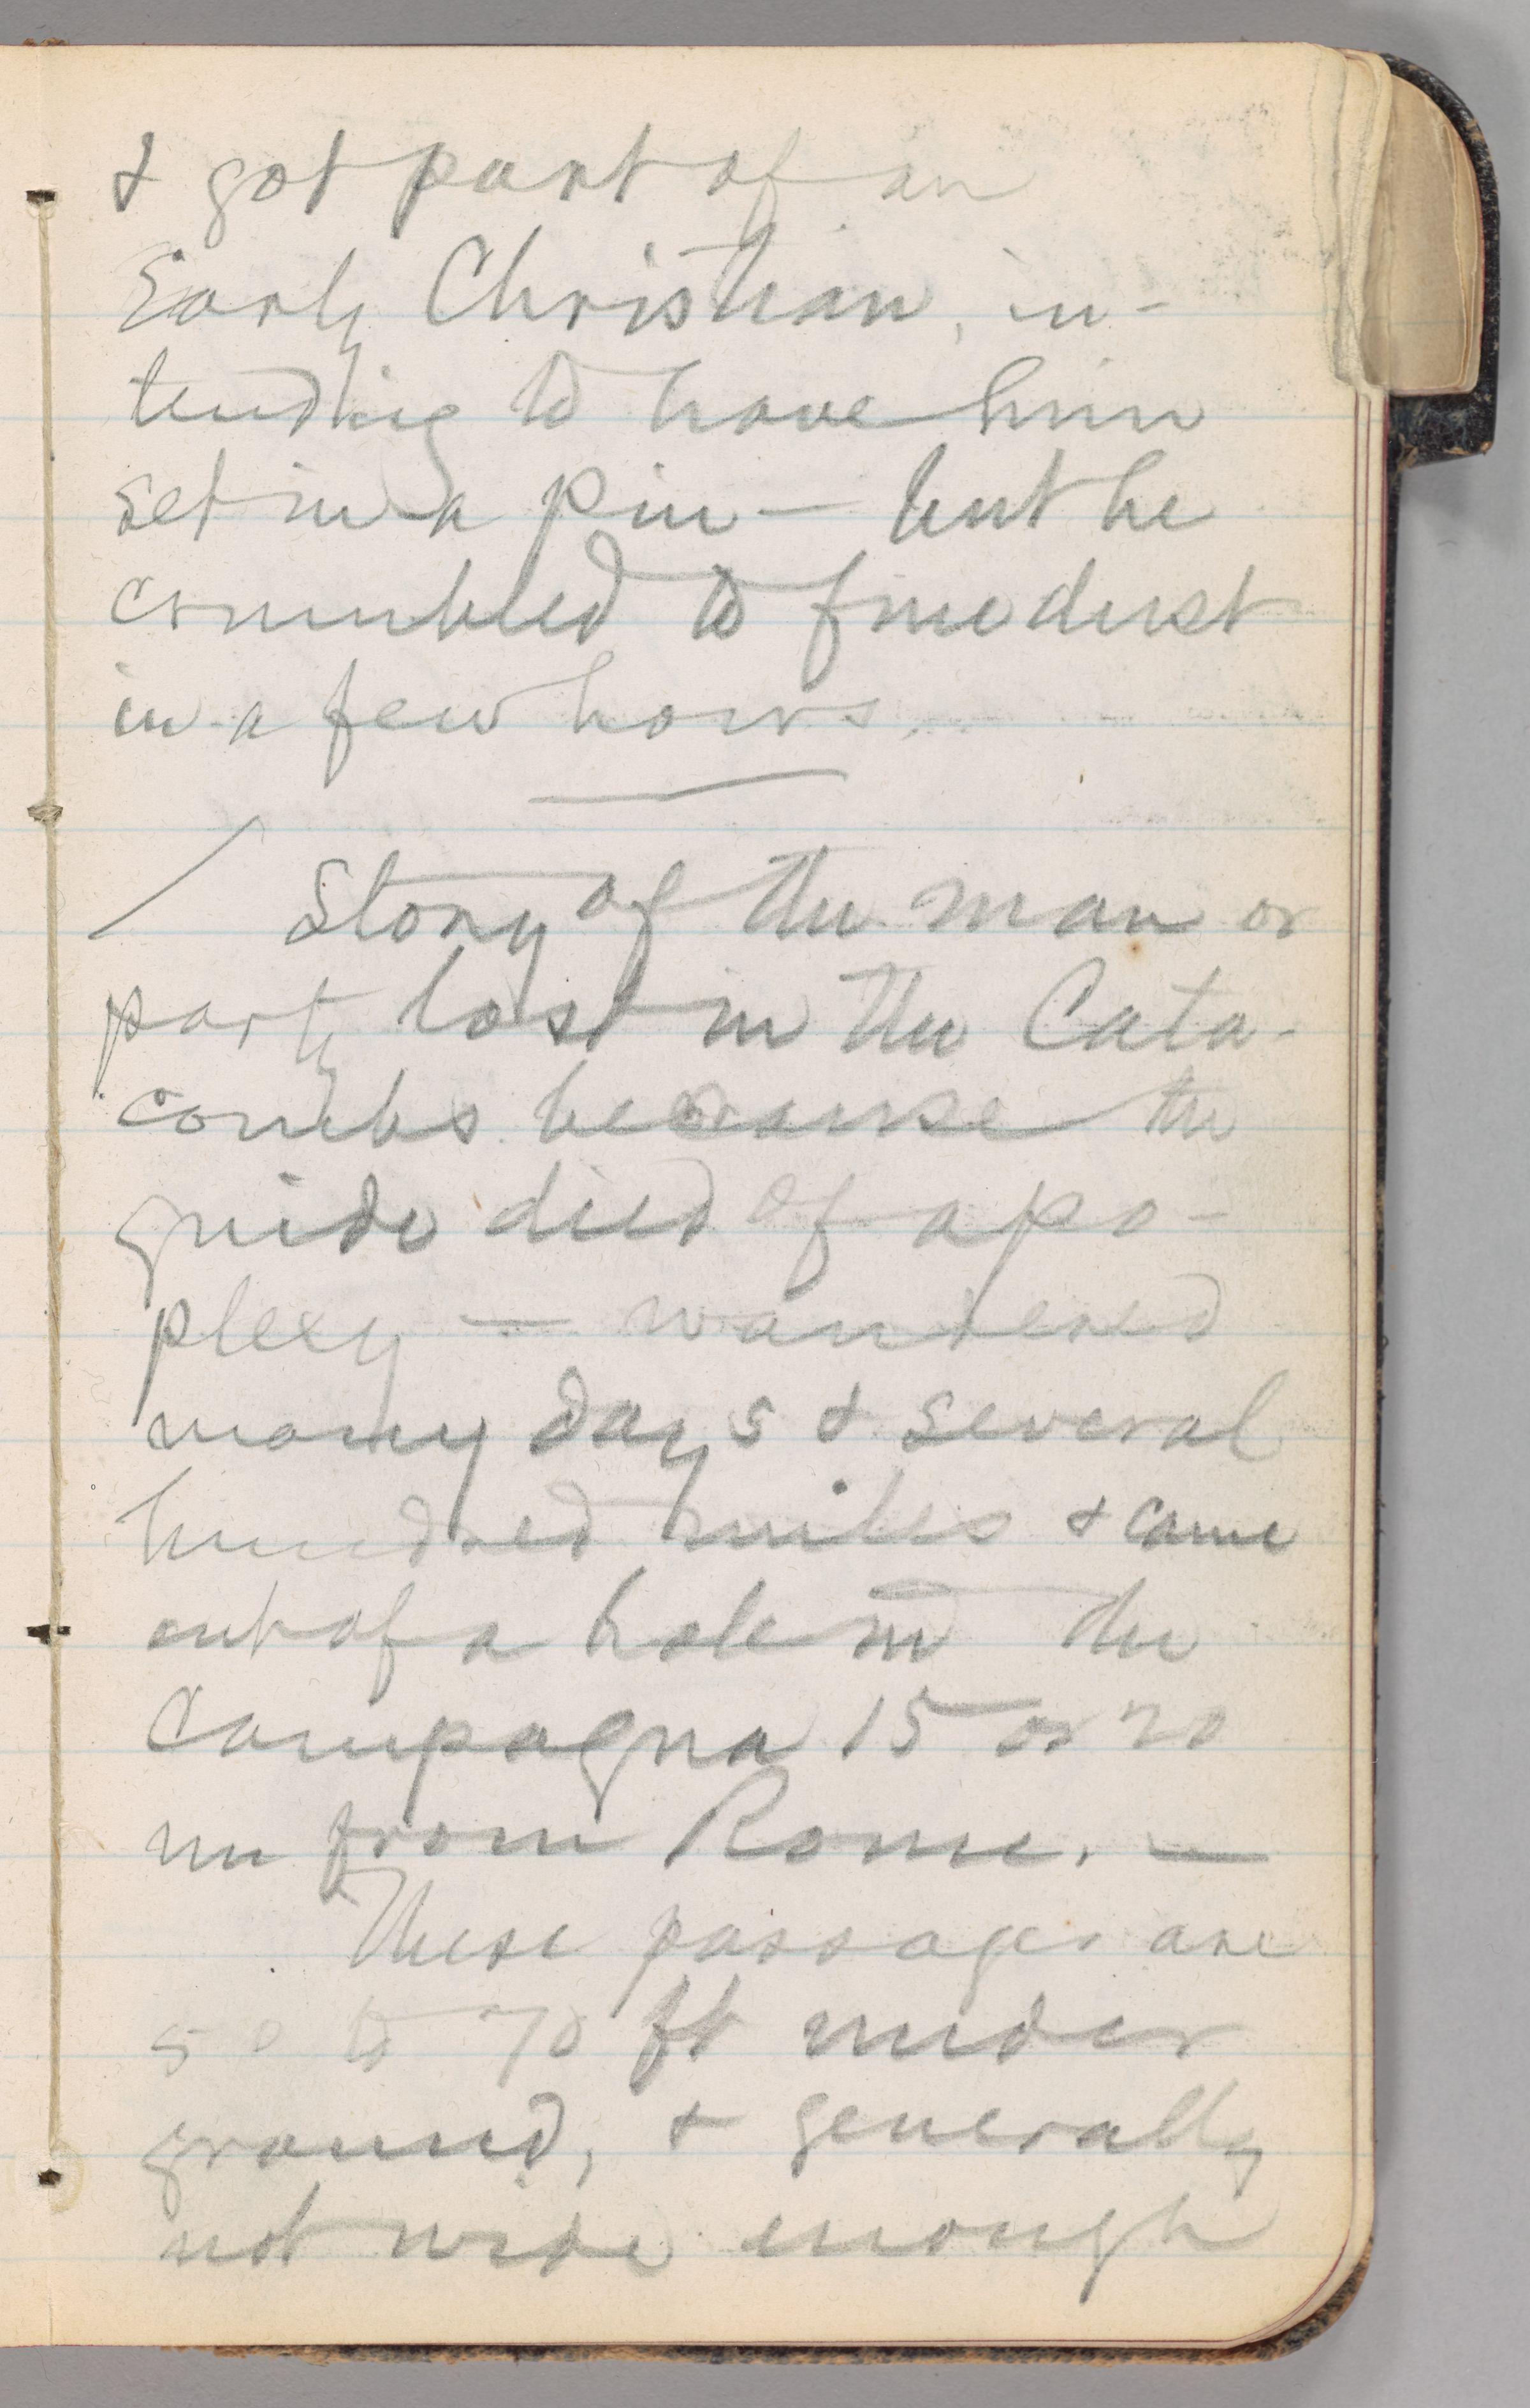 & got part of an
Early Christian, in-
tending to have him
set in a pin — but he
crumbled to fine dust
in a few hours.
Story of the man or
party lost in the Cata-
combs because the
guide died of apo-
plexy — wandered
many days & several
hundred miles & came
out of a hole in the
Campagna 15 or 20
m from Rome. —
These passages are
50 to 70 ft under
ground, & generally
not wide enough